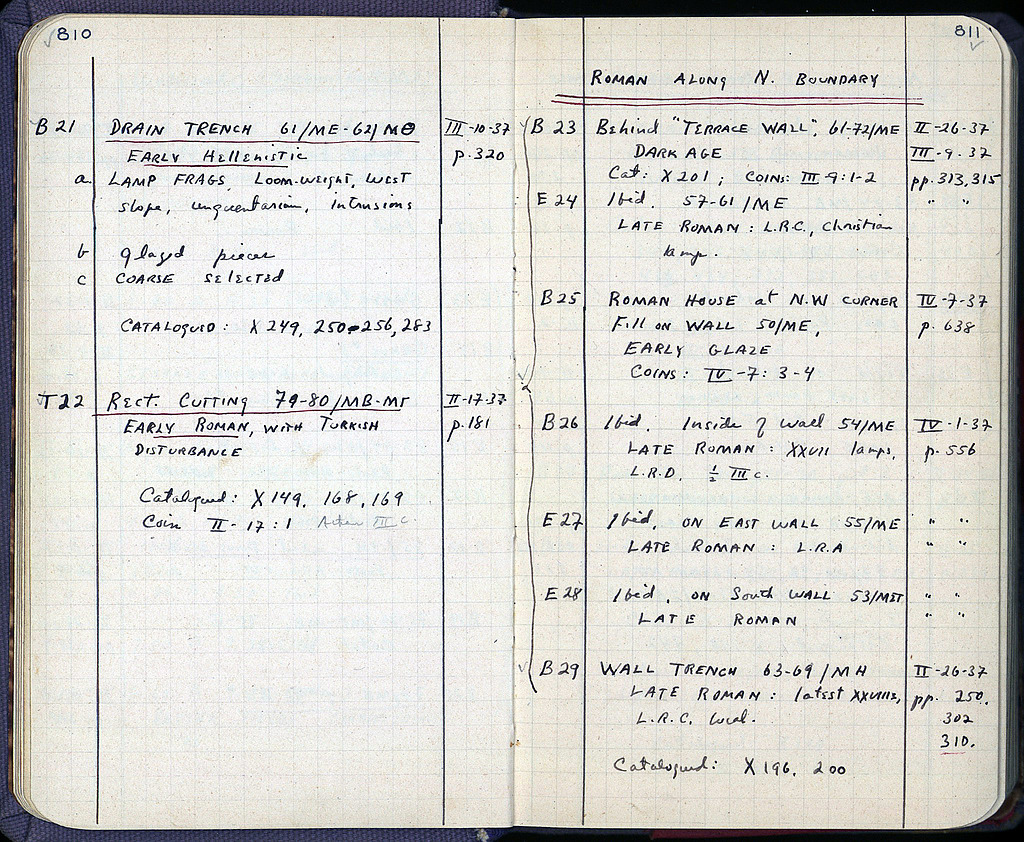 810
B 21 DRAIN TRENCH 61/ME-62/MΘ III-10-37
EARLY Hellenistic p.320
a LAMP FRAGS, Loom-weight, WEST
slope, unguentarium, intrusions
b glazed pieces
c COARSE selected
CATALOGUED: X 249, 250-256, 283
T 22 RECT. CUTTING 79-80/MB-MΓ II-17-37
EARLY ROMAN, WITH TURKISH p.181
DISTURBANCE
Catalogued: X 149, 168, 169
Coin II-17:1 III c.
811
ROMAN ALONG N. BOUNDARY
B 23 Behind "TERRACE WALL", 61-72/ME II-26-37
DARK AGE III-9-37
Cat: X 201; COINS: III-9:1-2 pp. 313,315
E 24 Ibid. 57-61/ME " "
LATE ROMAN: L.R.C., Christian
lamp.
B25 ROMAN HOUSE at N.W CORNER IV-7-37
Fill ON WALL 50/ME, p. 638
EARLY GLAZE
COINS: IV-7: 3-4
B26 Ibid. Inside of wall 54/ME IV-1-37
LATE ROMAN: XXVII lamps, p. 556
L.R.D. ½ III c.
E 27 Ibid. ON EAST WALL 55/ME " "
LATE ROMAN: L.R.A " "
E 28 Ibid. ON South WALL 53/MΣT " "
LATE ROMAN " "
B29 WALL TRENCH 63-69/MH II-26-37
LATE ROMAN: latest XXVIIIs, pp. 250,
L.R.C. local. 302
310.
Catalogued: X 196, 200